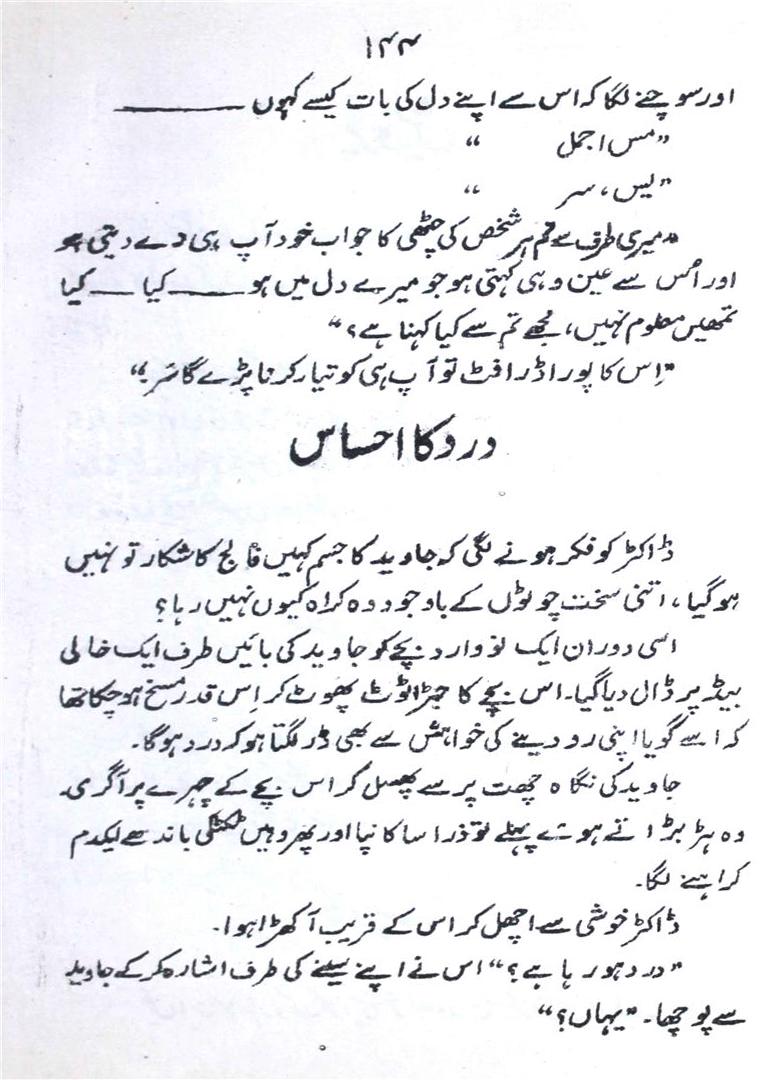 ۱۴۴
اور سوچنے لگا کہ اس سے اپنے دل کی بات کیسے کہوں ———
”مس اجمل “
”یس، سر “
”میری طرف سے تم ہر شخص کی چٹھی کا جواب خود آپ ہی دے دیتی ہو
اور اُس سے عین وہی کہتی ہو جو میرے دل میں ہو ——— کیا —— کیا
تمھیں معلوم نہیں، مجھے تم سے کیا کہنا ہے؟“
”اِس کا پورا ڈرافٹ تو آپ ہی کو تیار کرنا پڑے گا سَر۔“
درد کا احساس
ڈاکٹر کو فکر ہونے لگی کہ جاوید کا جسم کہیں فالج کا شکار تو نہیں
ہو گیا، اتنی سخت چوٹوں کے باوجود وہ کراہ کیوں نہیں رہا؟
اسی دوران ایک نووارد بچے کو جاوید کی بائیں طرف ایک خالی
بیڈ پر ڈال دیا گیا۔ اس بچے کا جبڑا ٹوٹ پھوٹ کر اِس قدر مسخ ہو چکا تھا
کہ اسے گویا اپنی رو دینے کی خواہش سے بھی ڈر لگتا ہو کہ درد ہوگا۔
جاوید کی نگاہ چھت پر سے پھسل کر اس بچے کے چہرے پر آگری۔
وہ ہڑبڑاتے ہوئے پہلے تو ذرا سا کانپا اور پھر وہیں ٹکٹکی باندھے یکدم
کراہنے لگا۔
ڈاکٹر خوشی سے اچھل کر اس کے قریب آ کھڑا ہوا۔
”درد ہو رہا ہے؟“ اس نے اپنے سینے کی طرف اشارہ کر کے جاوید
سے پوچھا۔ ”یہاں؟“